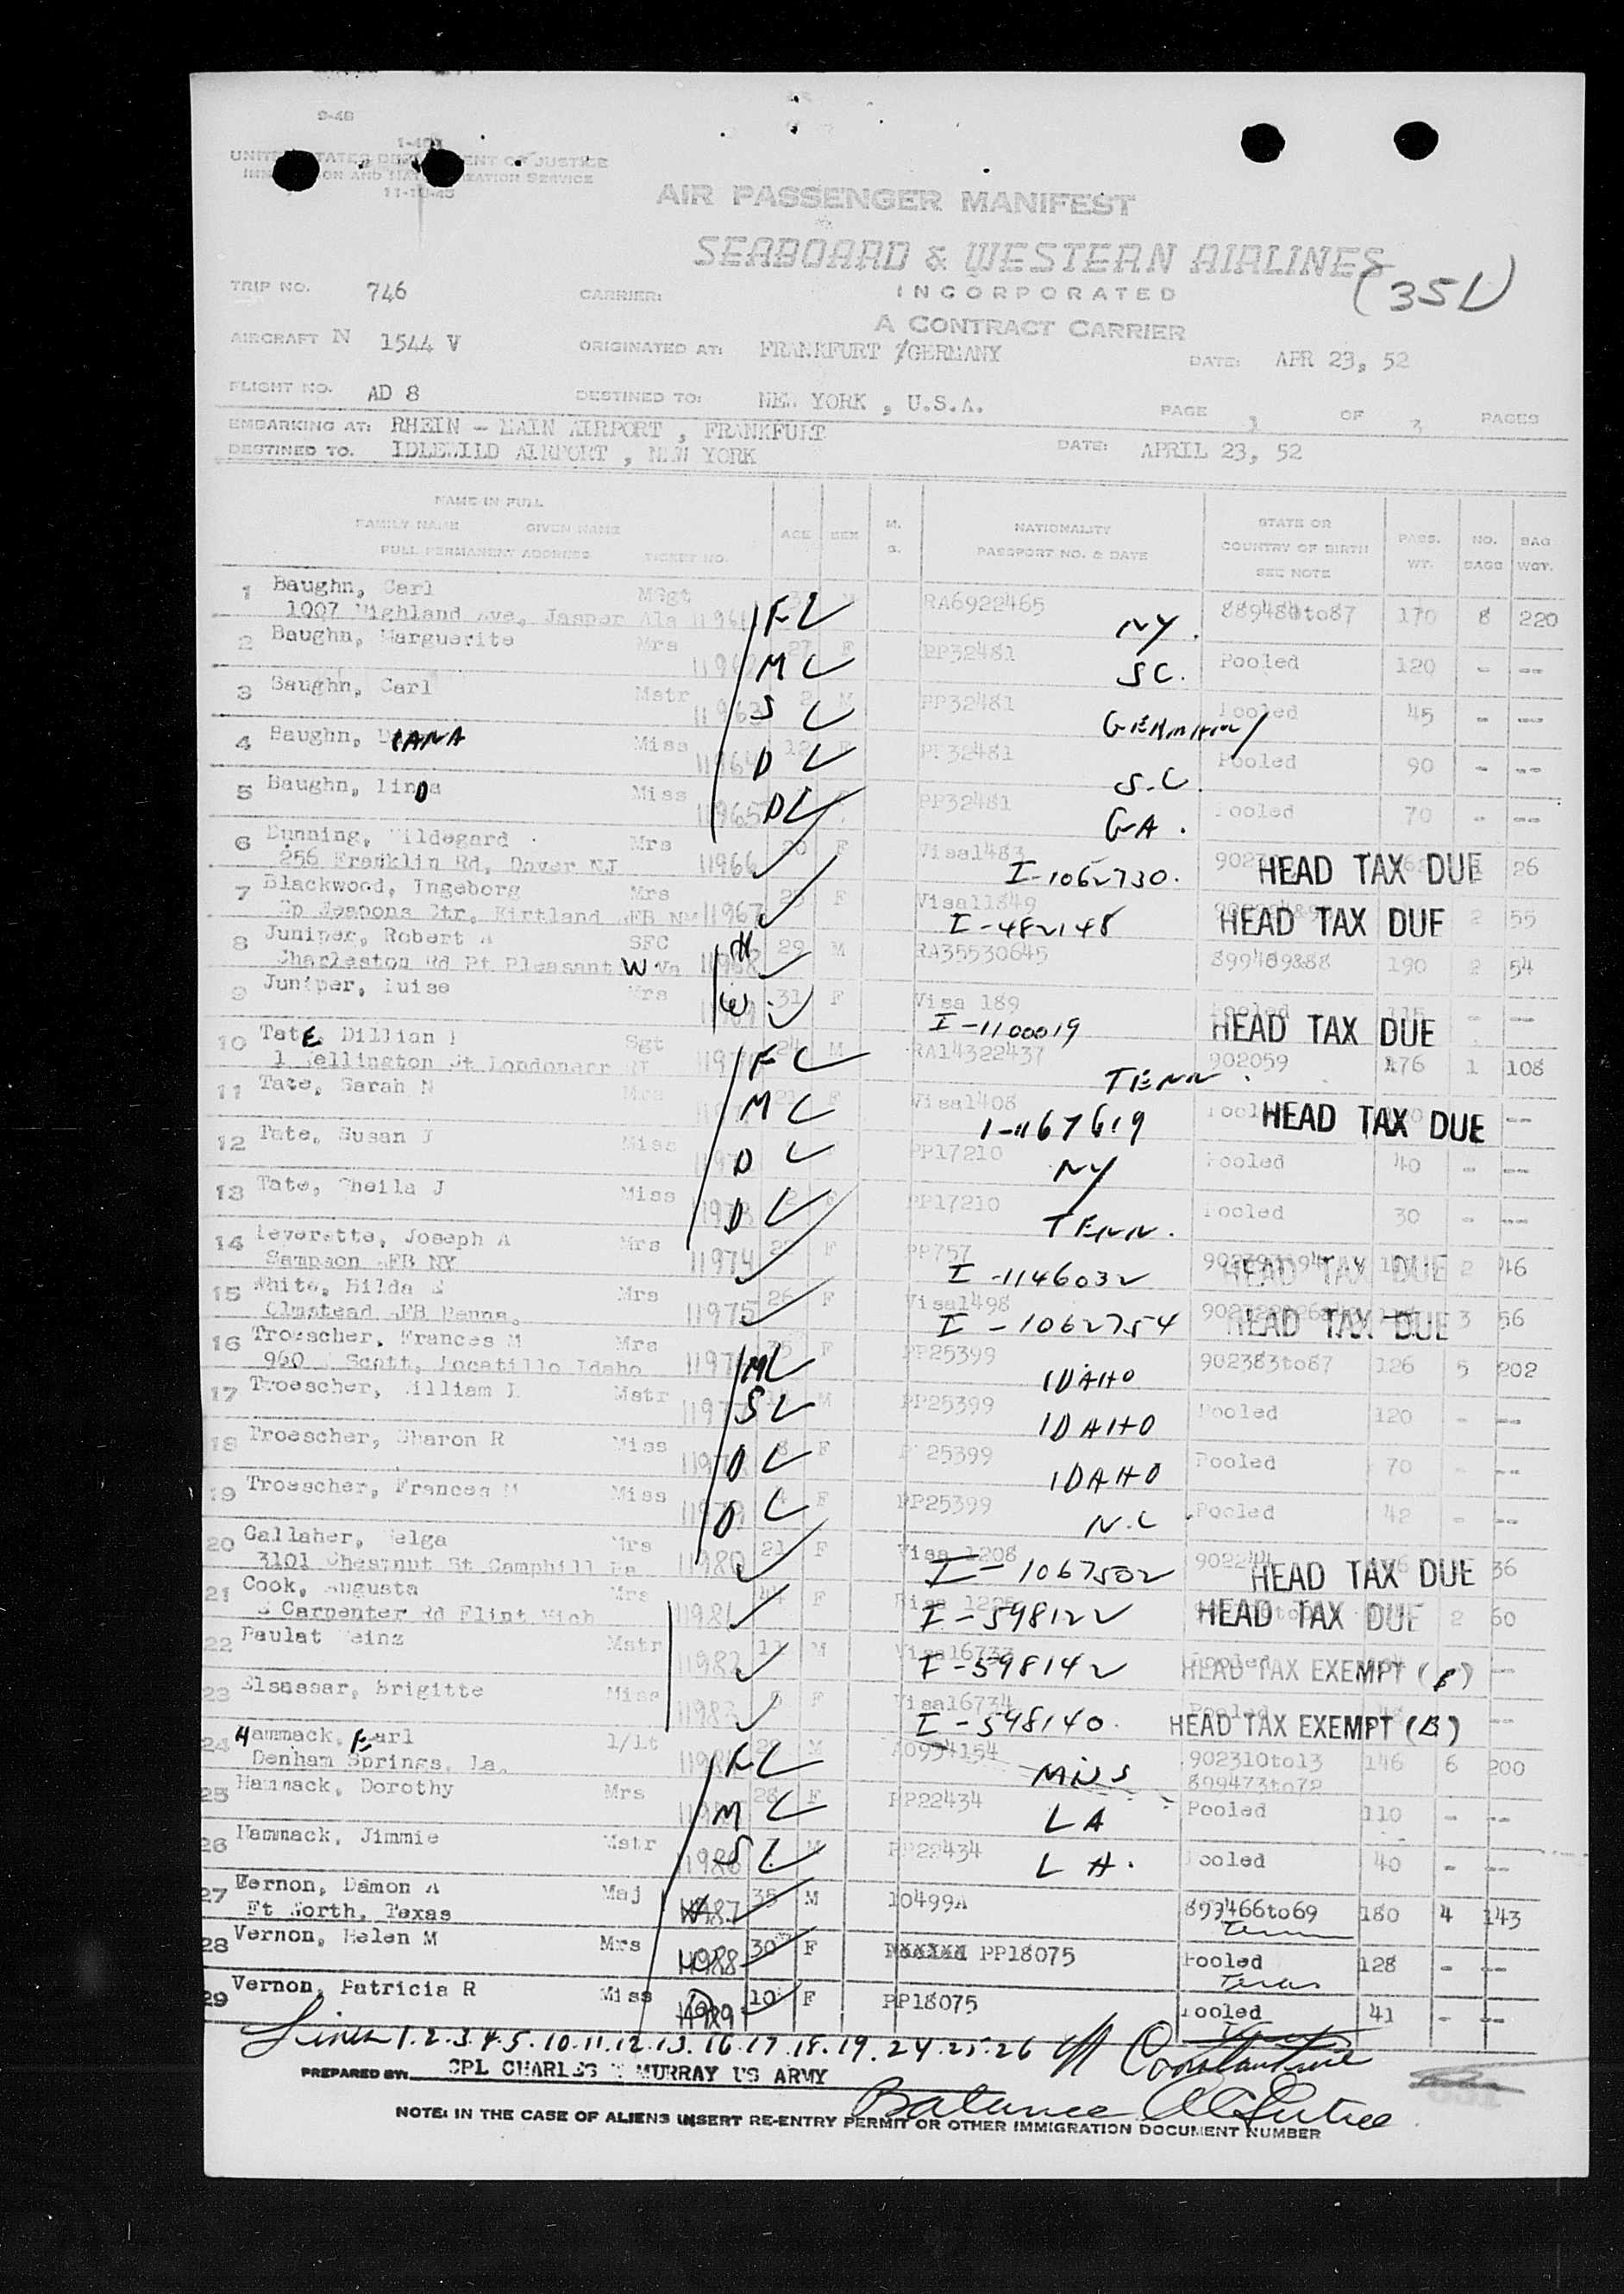 9-48
1-466
UNITED STATES DEPARTMENT OF JUSTICE
IMMIGRATION AND NATURALIZATION SERVICE
11-10-45
AIR PASSENGER MANIFEST
SEABOARD & WESTERN AIRLINES
INCORPORATED
A CONTRACT CARRIER
TRIP NO. 746 CARRIER:
AIRCRAFT N 1544 V ORIGINATED AT: FRANKFURT /GERMANY DATE: APR 23, 52
FLIGHT NO. AD 8 DESTINED TO: NEW YORK , U.S.A. PAGE 1 OF 3 PAGES
EMBARKING AT: RHEIN - MAIN AIRPORT , FRANKFURT
DESTINED TO. IDLEWILD AIRPORT , NEW YORK DATE: APRIL 23, 52
NAME IN FULL
FAMILY NAME GIVEN NAME
FULL PERMANENT ADDRESS TICKET NO. AGE SEX M. S. NATIONALITY PASSPORT NO. & DATE STATE OR COUNTRY OF BIRTH SEE NOTE PASS. WT. NO. BAGS BAG WGT.
1 Baughn, Carl MSgt M F RA6922465 NY. 889480to87 170 8 220
1007 Highland Ave, Jasper Ala 11961
2 Baughn, Marguerite Mrs 27 F M PP32481 SC. Pooled 120 - --
3 Baughn, Carl Mstr 11963 2 M S PP32481 GERMANY Pooled 45 - --
4 Baughn, DIANA Miss 11964 12 D PP32481 S.C. Pooled 90 - --
5 Baughn, linDa Miss 11965 D PP32481 GA. Pooled 70 - --
6 Dunning, Hildegard Mrs 11966 20 F Visa1483 I-1062730. HEAD TAX DUE 26
256 Franklin Rd, Dover NJ
7 Blackwood, Ingeborg Mrs 11967 25 F Visa11849 I-482148 HEAD TAX DUE 2 55
Sp Weapons Ctr, Kirtland AFB NM
8 Juniper, Robert A SFC 11968 H 29 M RA35530645 899489&88 190 2 54
Charleston Rd Pt Pleasant W Va
9 Juniper, Luise Mrs W 31 F Visa 189 I-1100019 Pooled HEAD TAX DUE - --
10 TatE, Dillian Sgt F 24 M RA14322437 TENN. 902059 176 1 108
11 Tate, Sarah N M 21 F Visa1408 I-1167619 HEAD TAX DUE --
12 Tate, Susan J Miss D PP17210 NY Pooled 40 - --
13 Tate, Sheila J Miss D 2 PP17210 TENN. Pooled 30 - --
14 Leverette, Joseph A Mrs 11974 F PP757 I-1146032 HEAD TAX DUE 2
Sampson AFB NY
15 White, Hilda Mrs 11975 26 F Visa1498 I-1062754 HEAD TAX DUE 3 56
Olmstead AFB Penna.
16 Troescher, Frances M Mrs M F PP25399 IDAHO 902383to87 126 5 202
960 Scott, Pocatillo Idaho
17 Troescher, William Mstr S M PP25399 IDAHO Pooled 120 - --
18 Troescher, Sharon R Miss D 8 F PP25399 IDAHO Pooled 70 - --
19 Troescher, Frances M Miss D F PP25399 N.C Pooled 42 - --
20 Gallaher, Helga Mrs 11980 21 F Visa 1208 I-1067502 HEAD TAX DUE 36
3101 Chestnut St Camphill Pa
21 Cook, Augusta Mrs 11981 44 F I-598122 HEAD TAX DUE 2 60
Carpenter Rd Flint Mich
22 Paulat Heinz Mstr 11982 M Visa16733 I-598142 HEAD TAX EXEMPT (B) --
23 Elsassar, Brigitte Miss 11983 F Visa16734 I-598140. HEAD TAX EXEMPT (B) --
24 Hammack, Earl 1/Lt F M AO934154 MISS 902310to13 146 6 200
Denham Springs, La. 899473to72
25 Hammack, Dorothy Mrs M 28 F PP22434 LA Pooled 110 - --
26 Hammack, Jimmie Mstr 11986 S M PP22434 LA. Pooled 40 - --
27 Vernon, Damon A Maj 11987 35 M 10499A 899466to69 180 4 143
Ft Worth, Texas
28 Vernon, Helen M Mrs 11988 30 F PP18075 Pooled Texas 128 - --
29 Vernon, Patricia R Miss 11989 10 F PP18075 Pooled 41 - --
Lines 1.2.3.4.5.10.11.12.13.16.17.18.19.24.25.26 Constantine
PREPARED BY: CPL CHARLES MURRAY US ARMY
Balance
NOTE: IN THE CASE OF ALIENS INSERT RE-ENTRY PERMIT OR OTHER IMMIGRATION DOCUMENT NUMBER